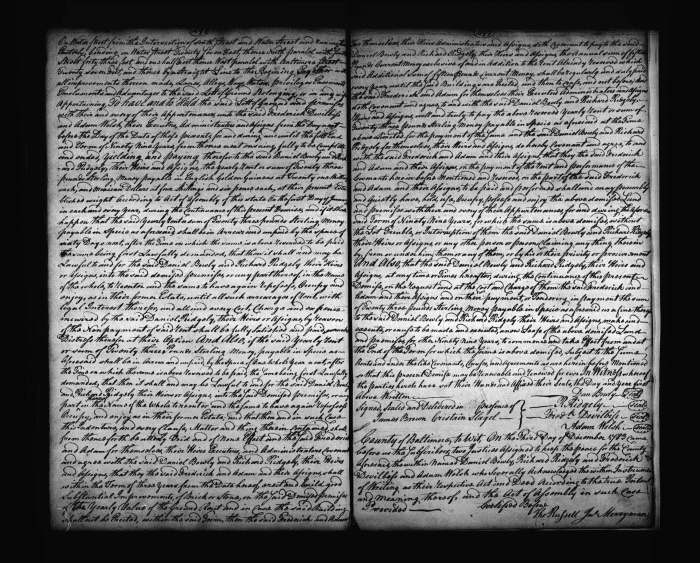 On Water Street from the Intersection of South Street and Water Street and running
Westerly binding on Water Street Twenty four feet thence North parallel with
South Street forty three feet and one half foot thence North parallel with Baltimore Street
Twenty seven feet, and thence by a straight Line to the Beginning Together with
all improvements thereon made,
Emoluments and Advantages to the said Lot of Ground Belonging or in any wise
Appertaining, To have and to Hold the said Lot of Ground and premises
with their and every of their Appurtenances, unto the said Frederick Devilbiss
and Adam Welsh, their Executors, Administrators and Assigns from the
before the Day of the Date of these presents for and during and until the full End
and Term of Ninety Nine Years from thence next ensuing fully to be Compleat
and ended, Yielding and paying therefor to the said Daniel Bowly and Richard
Ridgely, their Heirs and Assigns, the yearly rent or sum of Twenty three
pounds Sterling Money payable in English Golden Guineas at Twenty one Shillings
each, and Mexican Dollars at four shillings and six pence each, at their present Esta
blished weight According to Act of Assembly of this State On the first Day of June
in each and every Year during the Continuance of this present Demise, and if it shall
happen that the said Yearly Rent or sum of Twenty three pounds Sterling Money
payable in Specie as aforesaid shall be in Arrear and unpaid by the space of
sixty Days next, after the time on which the same is above reserved to be paid
the same being first Lawfully demanded, that then it shall and may be
Lawful to and for the said Daniel Bowly and Richard Ridgely their Heirs
or Assigns into the said demised premises or any part thereof in the name
of the whole, to reenter and the same to have again repossess, Occupy and
enjoy, as in their former Estate, until all such arrearage of Rent, with
legal Interest thereon, and all and every Cost Charge and expence
incurred by the said Daniel, Ridgely, their Heirs or Assigns, by reason
of the Non payment of said Rent shall be fully Satisfied and paid, or make
Distress therefor at their Option And Also, if the said yearly Rent
or sum of Twenty three pounds Sterling Money, payable in Specie as
Aforesaid shall be in Arrear and unpaid by the space of one whole Year next, after
the time on which the same is above reserved to be paid, the same being first Lawfully
demanded, that then it shall and may be Lawful to and for the said Daniel Bowly
and Richard Ridgely their Heirs or Assigns, into the said Demised premises, or any
part in the Name of the Whole to reenter, and the same to have again repossess
Occupy, and enjoy as in their former Estate, and that then and in such Case
this Indenture, and every Clause, Matter and thing therein Contained, shall
from thenceforth be utterly Void and of None Effect and the said Frederick
and Adam for themselves, their Heirs Executors, and Administrators Covenant
and agree with the said Daniel Bowly and Richard Ridgely, their Heirs
and Assigns, that they the said Frederick and Adam and their Assigns shall
within the Term of three Years from the Date hereof, erect and build good
Substantial Improvements, of Brick or Stone, on the said Demised premises
of the Yearly Value of the Ground Rent and in Case the said Building
shall not be Erected, within the said Term, then the said Frederick and Adam
for themselves, their Heirs Administrators and Assigns, doth Covenant to pay to the said
Daniel Bowly and Richard Ridgely, their Heirs and Assigns the annual sum of fifteen
Pounds Current Money exclusive of and in Addition to the Rent Already reserved which
said Additional Sum of fifteen Pounds Current Money, shall be regularly and
every Year until the said Buildings are erected, and then to cease, and not before And
the said Frederick and Adam for themselves their Executors Administrators and Assigns
doth Covenant and agree, to and with the said Daniel Bowly and Richard Ridgely,
Heirs and Assigns, well and truly to pay the above reserved Yearly Rent or sum of
Twenty three pounds Sterling Money payable in Specie as aforesaid at the time
above limited for the payment of the same and the said Daniel Bowly and Richard
Ridgely for themselves, their Heirs and Assigns, do hereby Covenant and agree, to and
with the said Frederick and Adam and their Assigns, that they the said Frederick
and Adam and their Assigns, on the payment of the Rent and performance of the
Covenants herein before Mentioned and reserved, on the part of the said Frederick
and Adam and their Assigns, to be paid and performed shall and may peaceably
and quietly have, hold, use, Occupy, possess and enjoy the above demised Land
and premises with their and every of their Appurtenances, for and during the aforesaid
Term of Ninety Nine Years for which the same is above demised, without
the Let, Trouble, or Interruption of them the said Daniel Bowly and Richard Ridgely,
their Heirs or Assigns or any other person or persons Claiming any thing therein
by from or under them, them or any of them, or by his or their privity or procurement
And Also, that the said Daniel Bowly and Richard Ridgely, their Heirs and
Assigns at any time or times hereafter, during the Continuance of this present
Demise, on the request and at the Cost and Charge of them the said Frederick and
Adam and their Assigns and on their payment, or tendering in payment the sum
of Twenty three pounds Sterling Money payable in Specie as aforesaid as a fine therefor
to the said Daniel Bowly and Richard Ridgely their Heirs and Assigns, make and
execute, or cause to be made and executed, a new Lease of the above demised Land
and premises for the Ninety Nine Years, to commence and take Effect from and at
the End of the Term, for which the same is above demised, Subject to the same
Rents and under the like Covenants, Clauses, and agreements as are herein before Mentioned
so that this present Demise may be renewable and renewed for ever In Witness whereof
the parties hereto have set their Hands and Affixed their Seals, the Day and Year first
above Written
Signed, Sealed and Delivered in presence of
James Brown Cristian Slegel
Dan Bowly Seal
R. Ridgely Seal
Fredk Devilbiss Seal
Adam Welsh Seal
County of Baltimore, to Wit. On the third Day of December 1783 Came
before us the Subscribers, two Justices Assigned to keep the peace for the County
Aforesaid, the within Named Daniel Bowly, Richard Ridgely and Frederick
Devilbiss and Adam Welsh who Severally Acknowledged the within Instrument
of Writing as their respective Act and Deed According to the true Intent
and Meaning thereof, and the Act of Assembly in such Case
Provided
Certified Before
Tho Russell Jno Merryman